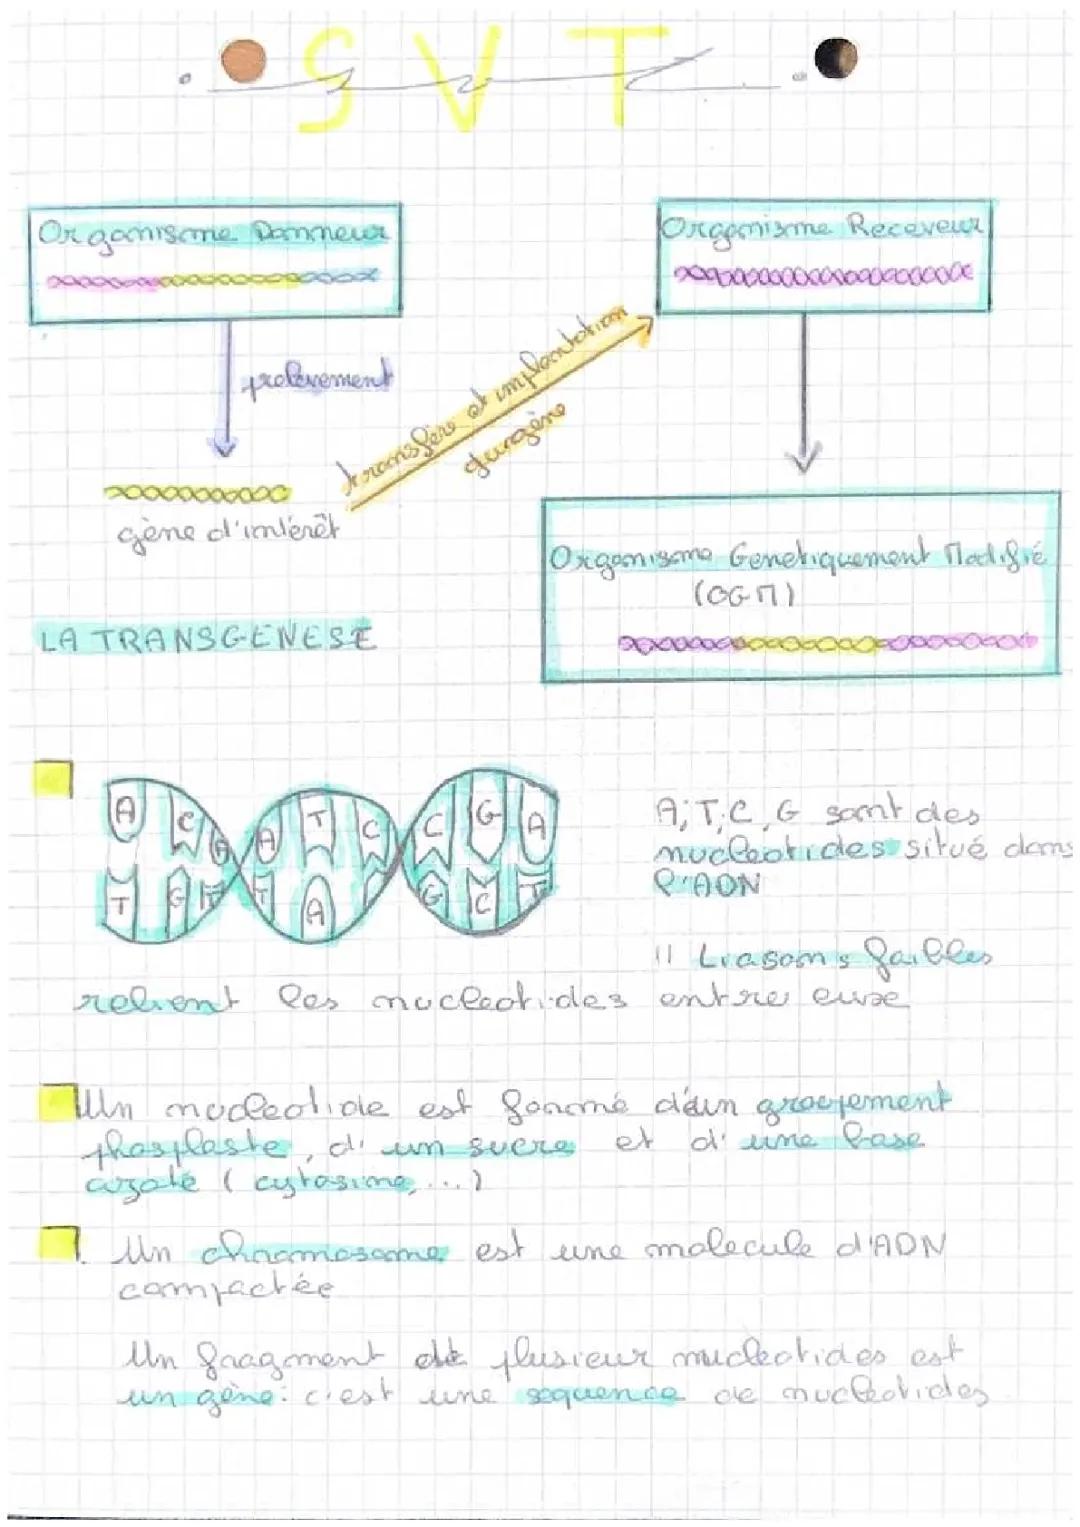 SVT
Organisme Donneur
Organisme Receveur
prelevement
transfère et implantation
du gène
gène d'intérêt
Organisme Genetiquement Modifié
(OGM)
LA TRANSGENESE
A C A A T C C G A
T G T T A G C T
A, T, C, G sont des
nucleotides situé dans
l'ADN
II Liasons faibles
relient les nucleotides entre euxe
Un nucleotide est formé d'un groupement
phosplaste, d'un sucre et d'une base
azoté (cytosine, ...)
. Un chromosome est une molecule d'ADN
compactée
Un fragment de plusieur nucleotides est
un gène: c'est une sequence de nucleotides